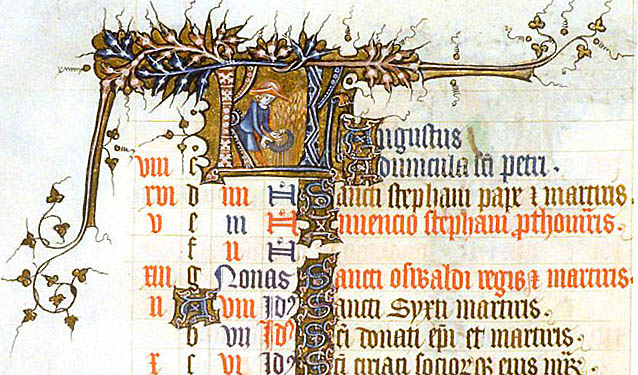 KL Augustus
viii c Aduincula sci petri.
xvi d iiii N Sancti stephani pape ⁊ martiris.
v e iii N Inuencio stephani ꝓthomris.
f ii N
xiii g Nonas Sancti oswaldi regis ⁊ martiris.
ii A viii Idꝰ Sancti Syxti martiris.
b vii Idꝰ Sci donati epi et martiris.
x c vi Idꝰ Sci ciriaci socioꝝ eius